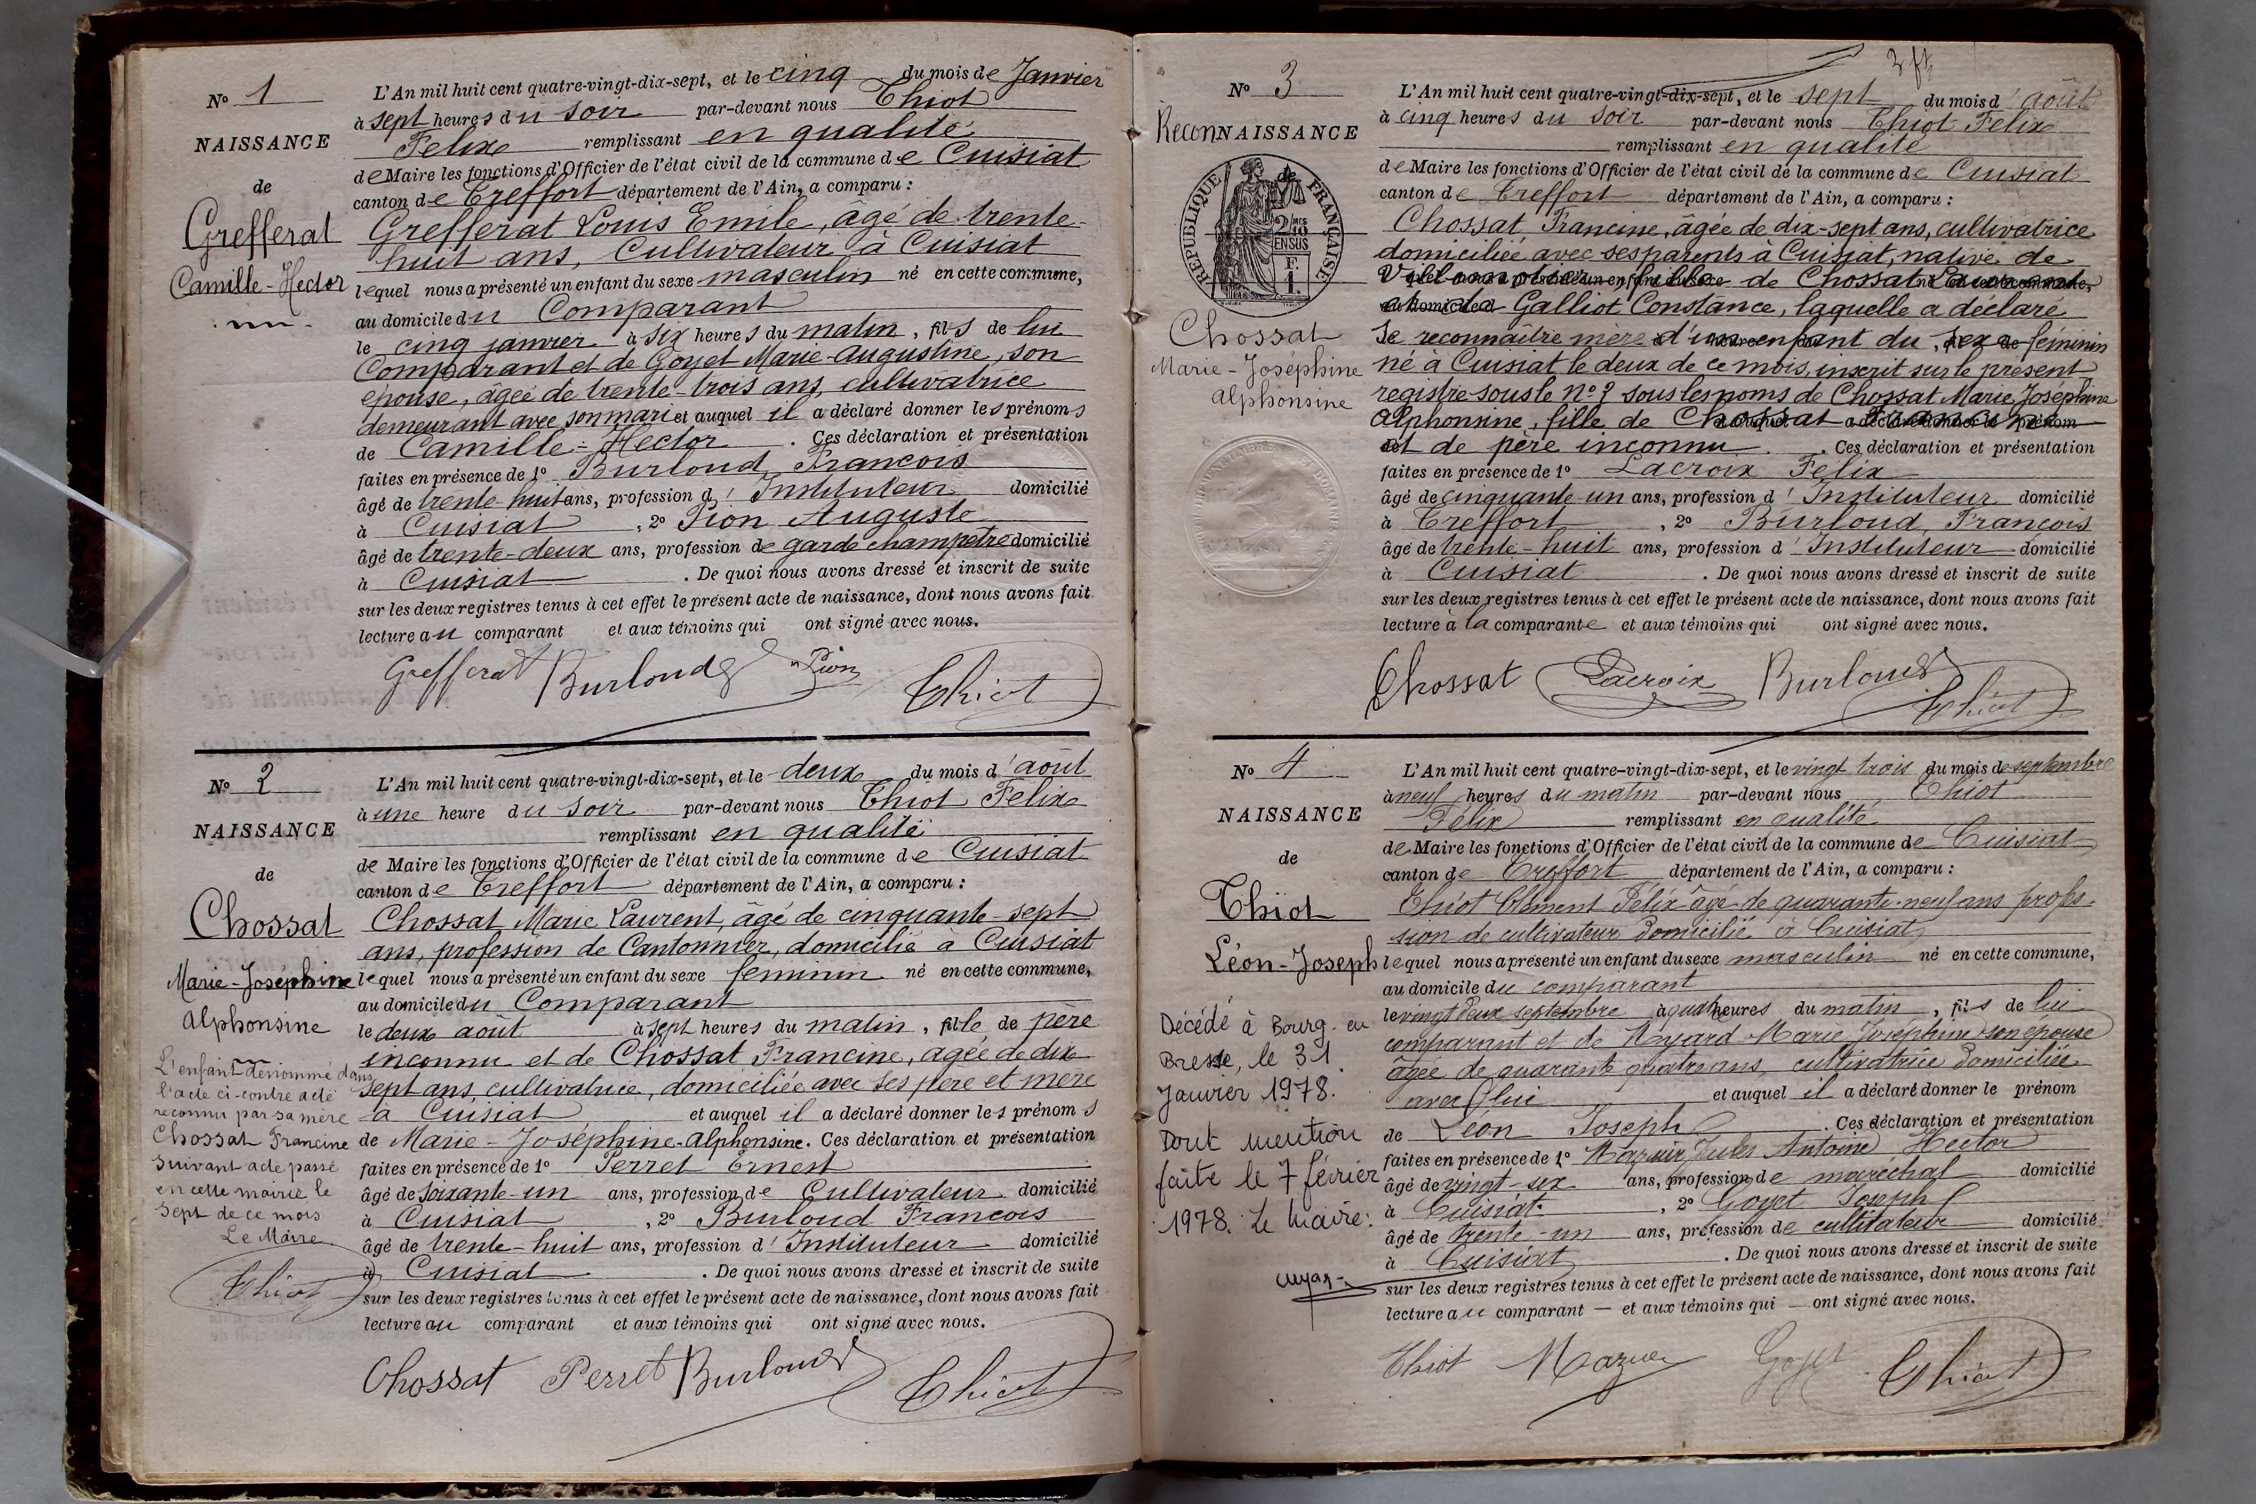 N° 1
NAISSANCE
de
Grefferat
Camille-Hector
L'An mil huit cent quatre-vingt-dix-sept, et le cinq du mois de Janvier
à sept heures du soir par-devant nous Thiot
Felix remplissant en qualité
de Maire les fonctions d'Officier de l'état civil de la commune de Cuisiat
canton de Treffort département de l'Ain, a comparu :
Grefferat Louis Emile, âgé de trente-
huit ans, Cultivateur à Cuisiat
lequel nous a présenté un enfant du sexe masculin né en cette commune,
au domicile du Comparant
le cinq janvier à six heures du matin, fils de lui
Comparant et de Goyet Marie-Augustine, son
épouse, âgée de trente-trois ans, cultivatrice
demeurant avec son mari et auquel il a déclaré donner les prénoms
de Camille-Hector. Ces déclaration et présentation
faites en présence de 1° Burloud François
âgé de trente-huit ans, profession d'Instituteur domicilié
à Cuisiat, 2° Pion Auguste
âgé de trente-deux ans, profession de garde champêtre domicilié
à Cuisiat. De quoi nous avons dressé et inscrit de suite
sur les deux registres tenus à cet effet le présent acte de naissance, dont nous avons fait
lecture au comparant et aux témoins qui ont signé avec nous.
Grefferat Burloud Pion Thiot
N° 2
NAISSANCE
de
Chossat
Marie-Joséphine
Alphonsine
L'enfant dénommé dans
l'acte ci-contre a été
reconnu par sa mère
Chossat Francine
suivant acte passé
en cette mairie le
sept de ce mois
Le Maire
Thiot
L'An mil huit cent quatre-vingt-dix-sept, et le deux du mois d'août
à une heure du soir par-devant nous Thiot Felix
remplissant en qualité
de Maire les fonctions d'Officier de l'état civil de la commune de Cuisiat
canton de Treffort département de l'Ain, a comparu :
Chossat Marie Laurent, âgé de cinquante-sept
ans, profession de Cantonnier, domicilié à Cuisiat
lequel nous a présenté un enfant du sexe féminin né en cette commune,
au domicile du Comparant
le deux août à sept heures du matin, fille de père
inconnu et de Chossat Francine, agée de dix
sept ans, cultivatrice, domiciliée avec ses père et mère
à Cuisiat et auquel il a déclaré donner les prénoms
de Marie-Joséphine-Alphonsine. Ces déclaration et présentation
faites en présence de 1° Perret Ernest
âgé de soixante-un ans, profession de Cultivateur domicilié
à Cuisiat, 2° Burloud François
âgé de trente-huit ans, profession d'Instituteur domicilié
à Cuisiat. De quoi nous avons dressé et inscrit de suite
sur les deux registres tenus à cet effet le présent acte de naissance, dont nous avons fait
lecture au comparant et aux témoins qui ont signé avec nous.
Chossat Perret Burloud Thiot
N° 3
ReconNAISSANCE
RÉPUBLIQUE FRANÇAISE
Chossat
Marie-Joséphine
Alphonsine
L'An mil huit cent quatre-vingt-dix-sept, et le sept du mois d'août
à cinq heures du soir par-devant nous Thiot Felix
remplissant en qualité
de Maire les fonctions d'Officier de l'état civil de la commune de Cuisiat
canton de Treffort département de l'Ain, a comparu :
Chossat Francine, âgée de dix-sept ans, cultivatrice
domiciliée avec ses parents à Cuisiat, native de
Villemotier, fille de Chossat Laurent
et de Galliot Constance, laquelle a déclaré
se reconnaître mère d'un enfant du sexe féminin
né à Cuisiat le deux de ce mois, inscrit sur le présent
registre sous le N° 2 sous les noms de Chossat Marie Joséphine
Alphonsine, fille de Chossat Francine
et de père inconnu. Ces déclaration et présentation
faites en présence de 1° Lacroix Felix
âgé de cinquante-un ans, profession d'Instituteur domicilié
à Treffort, 2° Burloud François
âgé de trente-huit ans, profession d'Instituteur domicilié
à Cuisiat. De quoi nous avons dressé et inscrit de suite
sur les deux registres tenus à cet effet le présent acte de naissance, dont nous avons fait
lecture à la comparante et aux témoins qui ont signé avec nous.
Chossat Lacroix Burloud Thiot
N° 4
NAISSANCE
de
Thiot
Léon-Joseph
Décédé à Bourg-en
Bresse, le 31
Janvier 1978.
Dont mention
faite le 7 février
1978. Le Maire:
L'An mil huit cent quatre-vingt-dix-sept, et le vingt trois du mois de septembre
à neuf heures du matin par-devant nous Thiot
Félix remplissant en qualité
de Maire les fonctions d'Officier de l'état civil de la commune de Cuisiat
canton de Treffort département de l'Ain, a comparu :
Thiot Clément Félix âgé de quarante-neuf ans profes-
sion de cultivateur domicilié à Cuisiat
lequel nous a présenté un enfant du sexe masculin né en cette commune,
au domicile du comparant
le vingt deux septembre à quatre heures du matin, fils de lui
comparant et de Marie Joséphine son épouse
âgée de quarante quatre ans, cultivatrice domiciliée
avec lui et auquel il a déclaré donner le prénom
de Léon Joseph. Ces déclaration et présentation
faites en présence de 1° Mazuir Jules Antoine Hector
âgé de vingt-six ans, profession de maréchal domicilié
à Cuisiat, 2° Goyet Joseph
âgé de trente-un ans, profession de cultivateur domicilié
à Cuisiat. De quoi nous avons dressé et inscrit de suite
sur les deux registres tenus à cet effet le présent acte de naissance, dont nous avons fait
lecture au comparant — et aux témoins qui — ont signé avec nous.
Thiot Mazuir Goyet Thiot